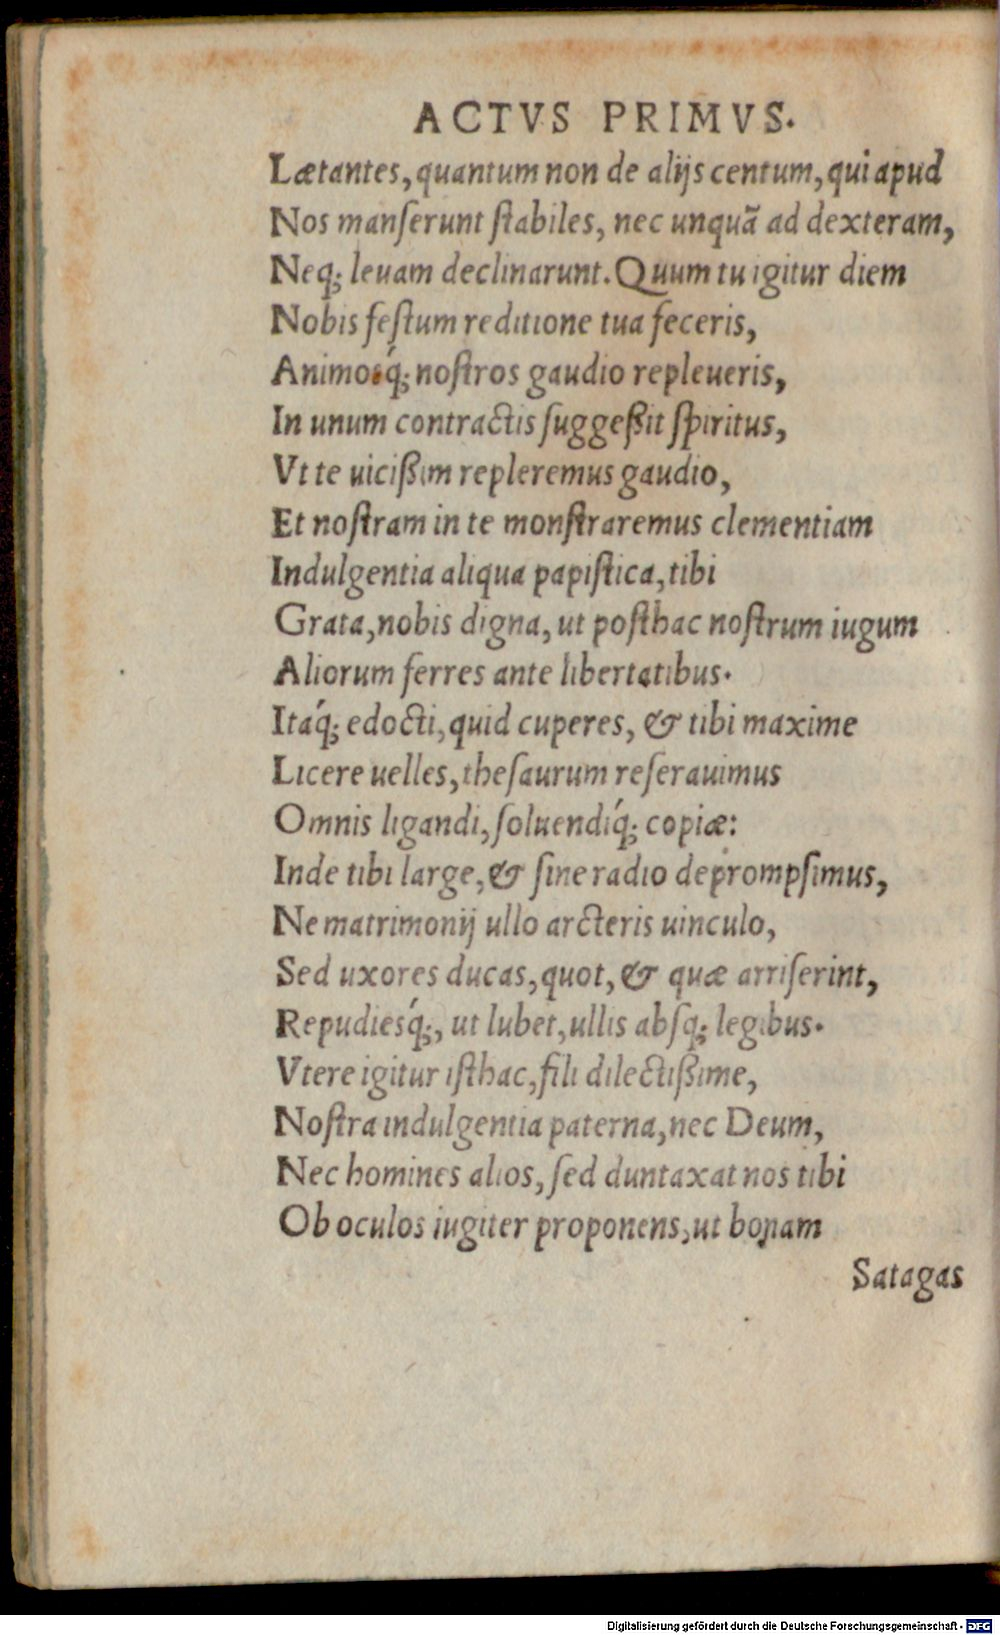 ACTVS PRIMVS.
Lætantes, quantum non de alijs centum, qui apud
Nos manſerunt ſtabiles, nec unquã ad dexteram,
Neq; leuam declinarunt. Quum tu igitur diem
Nobis feſtum reditione tua feceris,
Animosq́; noſtros gaudio repleueris,
In unum contractis ſuggeßit ſpiritus,
Vt te uicißim repleremus gaudio,
Et noſtram in te monſtraremus clementiam
Indulgentia aliqua papiſtica, tibi
Grata, nobis digna, ut poſthac noſtrum iugum
Aliorum ferres ante libertatibus.
Itaq́; edocti, quid cuperes, & tibi maxime
Licere uelles, theſaurum reſerauimus
Omnis ligandi, ſoluendiq́; copiæ:
Inde tibi large, & ſine radio deprompſimus,
Ne matrimonij ullo arcteris uinculo,
Sed uxores ducas, quot, & quæ arriſerint,
Repudiesq́;, ut lubet, ullis abſq; legibus.
Vtere igitur iſthac, fili dilectißime,
Noſtra indulgentia paterna, nec Deum,
Nec homines alios, ſed duntaxat nos tibi
Ob oculos iugiter proponens, ut bonam
Satagas
Digitalisierung gefördert durch die Deutsche Forschungsgemeinschaft - DFG